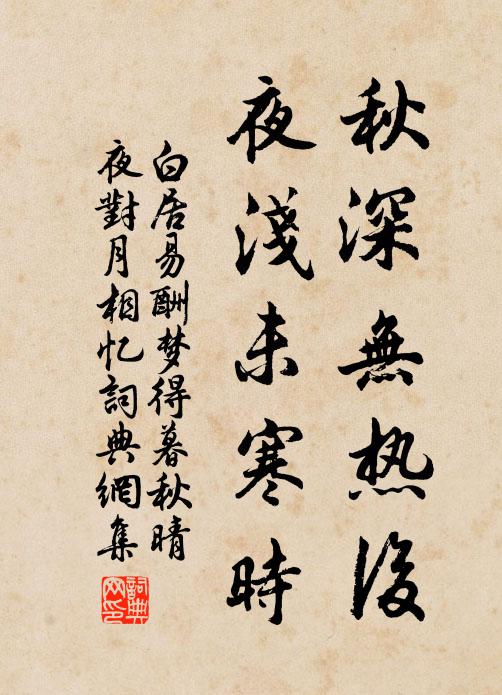 秋深無热後
夜淺未寒時
白居易酬梦得暮秋晴
夜對月相忆詞典網集
詞典網印